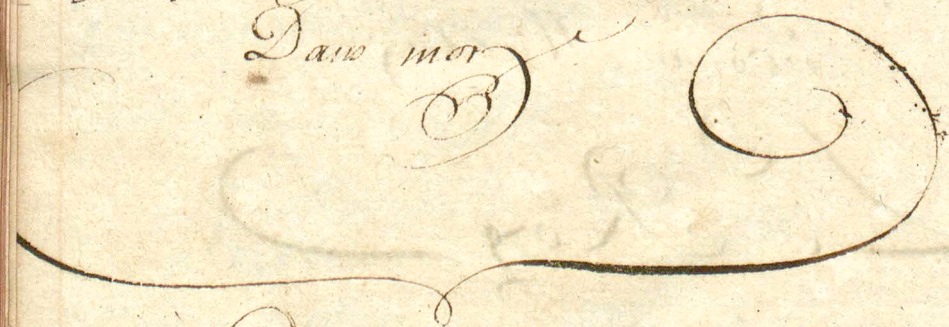 Daus mor